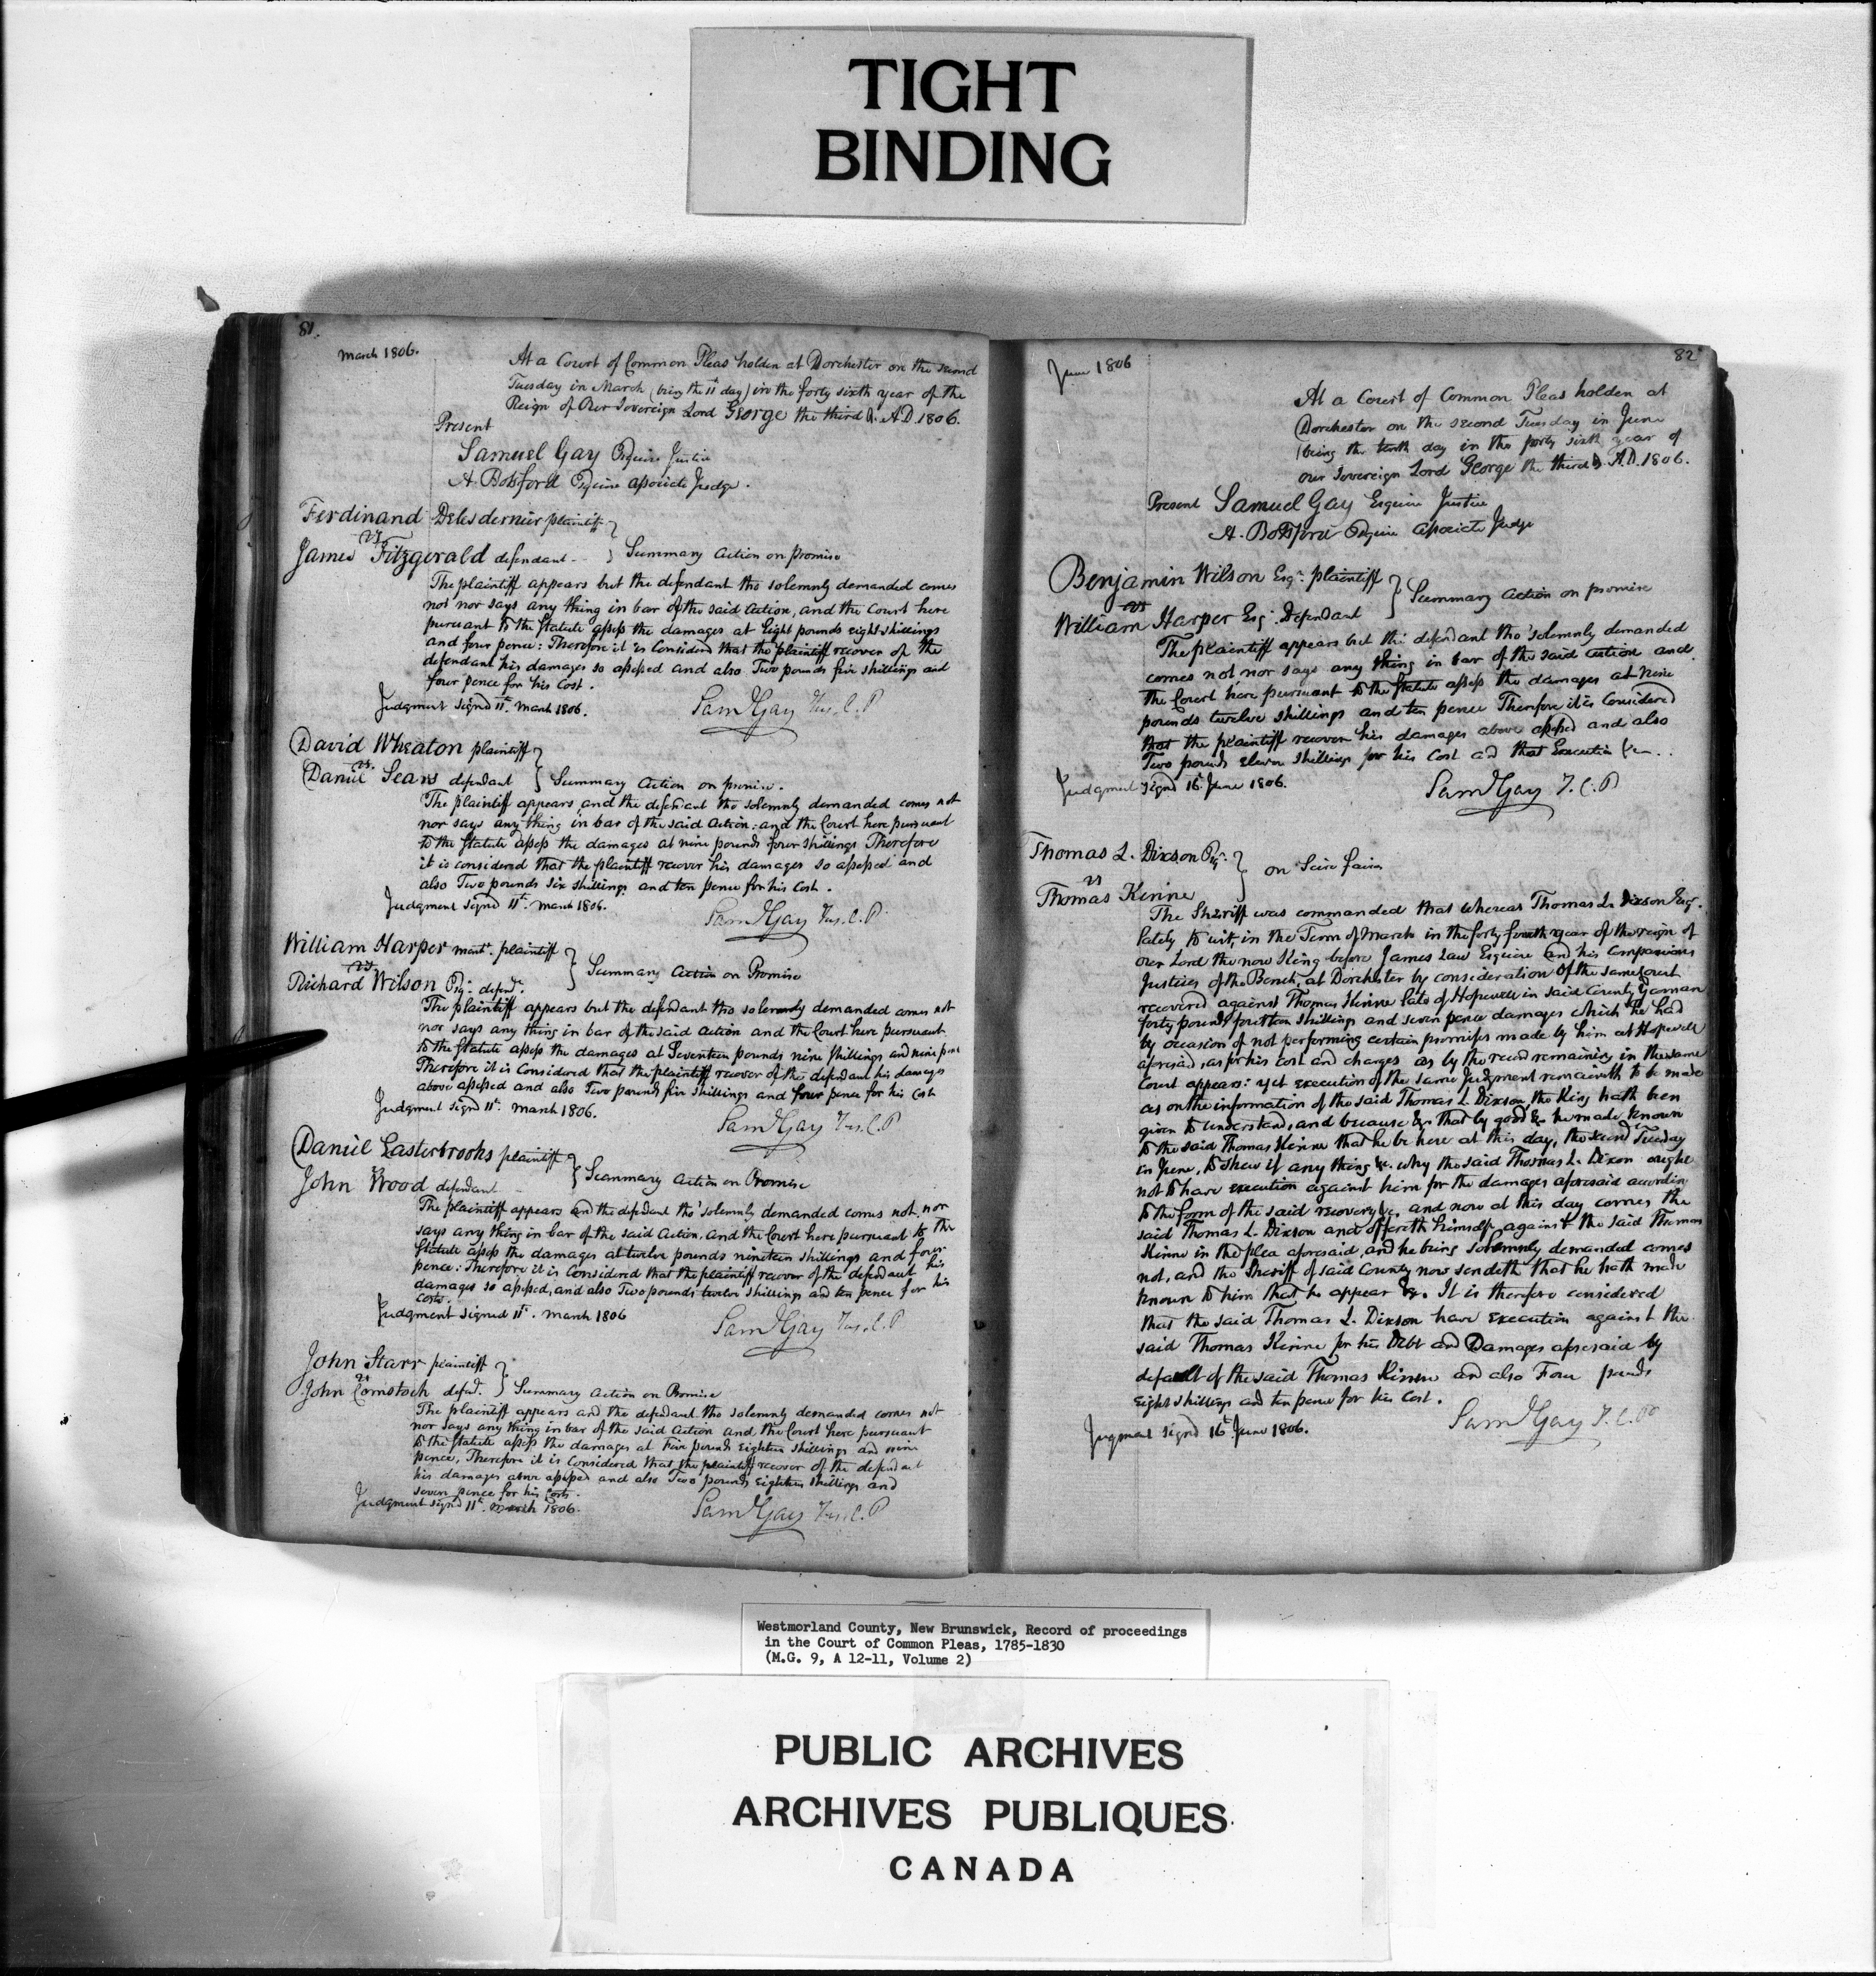 TIGHT
BINDING
81.
March 1806.
At a Court of Common Pleas holden at Dorchester on the second
Tuesday in March (being the 11th day) in the forty sixth year of the
Reign of Our Sovereign Lord George the third &c. A.D. 1806.
Present
Samuel Gay Esquire Justice
A. Botsford Esquire associate Judge.
Ferdinand Delesdernier plaintiff
vs
James Fitzgerald defendant -- } Summary Action on promise
The plaintiff appears but the defendant tho solemnly demanded comes
not nor says any thing in bar of the said action, and the Court here
pursuant to the Statute assess the damages at Eight pounds eight shillings
and four pence: Therefore it is Considered that the plaintiff recover of the
defendant his damages so assessed and also Two pounds five shillings and
four pence for his Cost.
Judgment signd 11th. March 1806.
Saml Gay Jus. C. P
David Wheaton plaintiff
vs.
Daniel Sears defendant } Summary Action on promise.
The plaintiff appears and the defendant tho solemnly demanded comes not
nor says any thing in bar of the said Action: and the Court here pursuant
to the Statute assess the damages at nine pounds four shillings Therefore
it is considered that the plaintiff recover his damages so assessed and
also Two pounds six shillings and ten pence for his Cost.
Judgment signd 11th. March 1806.
Saml Gay Jus. C. P.
William Harper mercht. plaintiff
vs.
Richard Wilson Esqr. defendt. } Summary Action on Promise
The plaintiff appears but the defendant tho solemnly demanded comes not
nor says any thing in bar of the said action and the Court here pursuant
to the Statute assess the damages at Seventeen pounds nine shillings and nine pence
Therefore it is Considered that the plaintiff recover of the defendant his damages
above assessed and also Two pounds five shillings and four pence for his Cost
Judgment signd 11th. March 1806.
Saml Gay Jus. C. P
Daniel Easterbrooks plaintiff
vs
John Wood defendant } Summary Action on Promise
The plaintiff appears and the defendant tho' solemnly demanded comes not, nor
says any thing in bar of the said Action, and the Court here pursuant to the
Statute assess the damages at twelve pounds nineteen shillings and four
pence: Therefore it is Considered that the plaintiff recover of the defendant his
damages so assessed, and also Two pounds twelve shillings and ten pence for his
costs.
Judgment signed 11th. March 1806
Saml Gay Jus. C. P
John Starr plaintiff
vs
John Comstock defendt. } Summary Action on Promise
The plaintiff appears and the defendant tho solemnly demanded comes not
nor says any thing in bar of the said Action and the Court here pursuant
to the Statute assess the damages at Five pounds Eighteen shillings and nine
pence, Therefore it is Considered that the plaintiff recover of the defendant
his damages above assessed and also Two pounds Eighteen shillings and
seven pence for his Costs.
Judgment signd 11th. March 1806.
Saml Gay Jus. C. P
June 1806
82
At a Court of Common Pleas holden at
Dorchester on the second Tuesday in June
(being the tenth day in the forty sixth year of
our Sovereign Lord George the third &c. A.D. 1806.
Present Samuel Gay Esquire Justice
A. Botsford Esquire associate Judge
Benjamin Wilson Esqr. plaintiff
vs
William Harper Esq. Defendant } Summary Action on promise
The plaintiff appears but the defendant tho' solemnly demanded
comes not nor says any thing in bar of the said action and
the Court here pursuant to the Statute assess the damages at Nine
pounds twelve shillings and ten pence Therefore it is Considered
that the plaintiff recover his damages above assessed and also
Two pounds Eleven Shillings for his Cost and that Execution &c ..
Judgment signd 16th June 1806.
Saml Gay J. C. P
Thomas L. Dixson Esqr.
vs } on Scire facias
Thomas Kinne
The Sheriff was commanded that whereas Thomas L. Dixson Esqr.
lately to wit, in the Term of March in the forty fourth year of the reign of
our Lord the now King before James Law Esquire and his Companions
Justices of the Bench, at Dorchester by consideration of the same Court
recovered against Thomas Kinne late of Hopewell in said County Yeoman
forty pounds fourteen shillings and seven pence damages which he had
by occasion of not performing certain promises made by him at Hopewell
aforesaid, as for his cost and charges as by the record remaining in the same
Court appears: yet execution of the same Judgment remaineth to be made
as on the information of the said Thomas L. Dixson the King hath been
given to understand, and because &c. that by good &c. he made known
to the said Thomas Kinne that he be here at this day, the second Tuesday
in June, to shew if any thing &c. why the said Thomas L. Dixson ought
not to have execution against him for the damages aforesaid according
to the form of the said recovery &c. and now at this day comes the
said Thomas L. Dixson and offereth himself against the said Thomas
Kinne in the plea aforesaid, and he being Solemnly demanded comes
not, and the Sheriff of said County now sendeth that he hath made
known to him that he appear &c. It is therefore considered
that the said Thomas L. Dixson have execution against the
said Thomas Kinne for his Debt and Damages aforesaid by
default of the said Thomas Kinne and also Four pounds
Eight shillings and ten pence for his Cost.
Jugment signd 16th June 1806.
Saml Gay J. C. P
Westmorland County, New Brunswick, Record of proceedings
in the Court of Common Pleas, 1785-1830
(M.G. 9, A 12-11, Volume 2)
PUBLIC ARCHIVES
ARCHIVES PUBLIQUES
CANADA